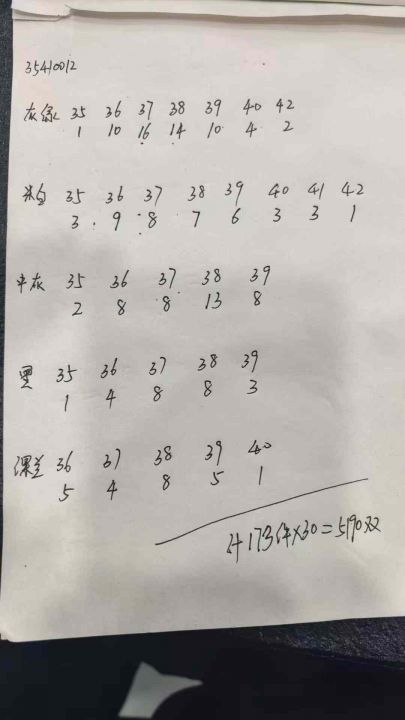 35410012
灰绿 35 36 37 38 39 40 42
1 10 16 14 10 4 2
米白 35 36 37 38 39 40 41 42
3 9 8 7 6 3 3 1
中灰 35 36 37 38 39
2 8 8 13 8
黑 35 36 37 38 39
1 4 8 8 3
36 37 38 39 40
5 4 8 5 1
计173件×30=5190双